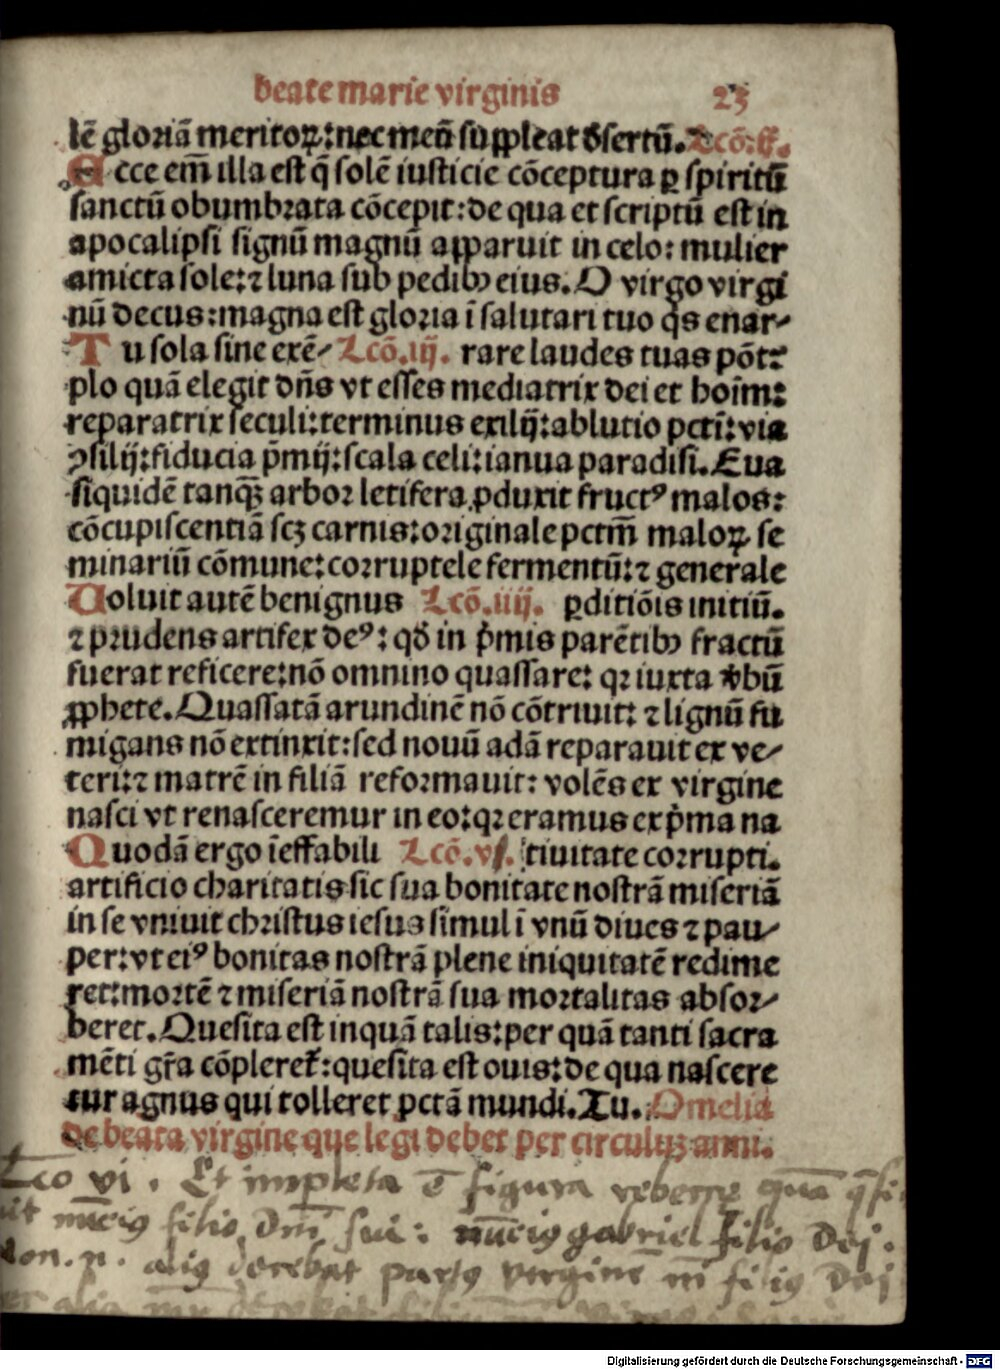 beate marie virginis 23
lē gloriā meritoꝝ: nec meū suppleat d̄sertū. Lcō. ij.
Ecce em̄ illa est q̄ solē iusticie cōceptura ꝑ spiritū
sanctū obumbrata cōcepit: de qua et scriptū est in
apocalipsi signū magnū apparuit in celo: mulier
amicta sole: ⁊ luna sub pedibꝰ eius. O virgo virgi
nū decus: magna est gloria ī salutari tuo q̄s enar-
Tu sola sine exē- Lcō. iij. rare laudes tuas pōt:
plo quā elegit dn̄s vt esses mediatrix dei et hoīm:
reparatrix seculi: terminus exilij: ablutio pctī: via
ꝯsilij: fiducia p̄mij: scala celi: ianua paradisi. Eua
siquidē tanqꝫ arbor letifera ꝓduxit fructꝰ malos:
cōcupiscentiā scꝫ carnis: originale pctm̄ maloꝝ se
minariū cōmune: corruptele fermentū: ⁊ generale
Uoluit autē benignus Lcō. iiij. ꝑditiōis initiū.
⁊ prudens artifex deꝰ: qd̄ in p̄mis parētibꝰ fractū
fuerat reficere: nō omnino quassare: qꝛ iuxta v̄bū
ꝓphete. Quassatā arundinē nō cōtriuit: ⁊ lignū fu
migans nō extinxit: sed nouū adā reparauit ex ve-
teri: ⁊ matrē in filiā reformauit: volēs ex virgine
nasci vt renasceremur in eo: qꝛ eramus ex p̄ma na
Quodā ergo īeffabili Lcō. v. tiuitate corrupti.
artificio charitatis sic sua bonitate nostrā miseriā
in se vniuit christus iesus simul ī vnū diues ⁊ pau-
per: vt eiꝰ bonitas nostrā plene iniquitatē redime
ret: mortē ⁊ miseriā nostrā sua mortalitas absor-
beret. Quesita est inquā talis: per quā tanti sacra
mēti gr̄a cōpleret̄: quesita est ouis: de qua nascere
tur agnus qui tolleret pctā mundi. Tu. Omelia
de beata virgine que legi debet per circulūꝫ anni.
Lco vi. Et impleta ē figura rebecce quā
nūciꝰ filio dn̄i sui: nūciꝰ gabriel filio dei.
non. n. aliꝰ decebat partꝰ virginē nī filiꝰ dei